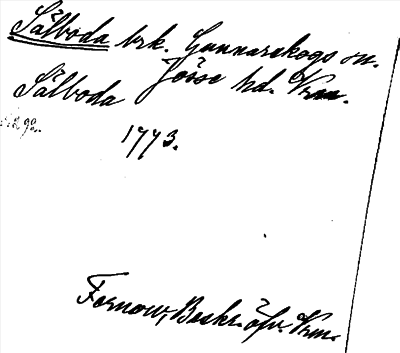 Sälboda brk. Gunnarskogs sn.
Jösse hd. Vrm.
Sälboda
1773.
Fernow, Beskr. öfv. Vrm.